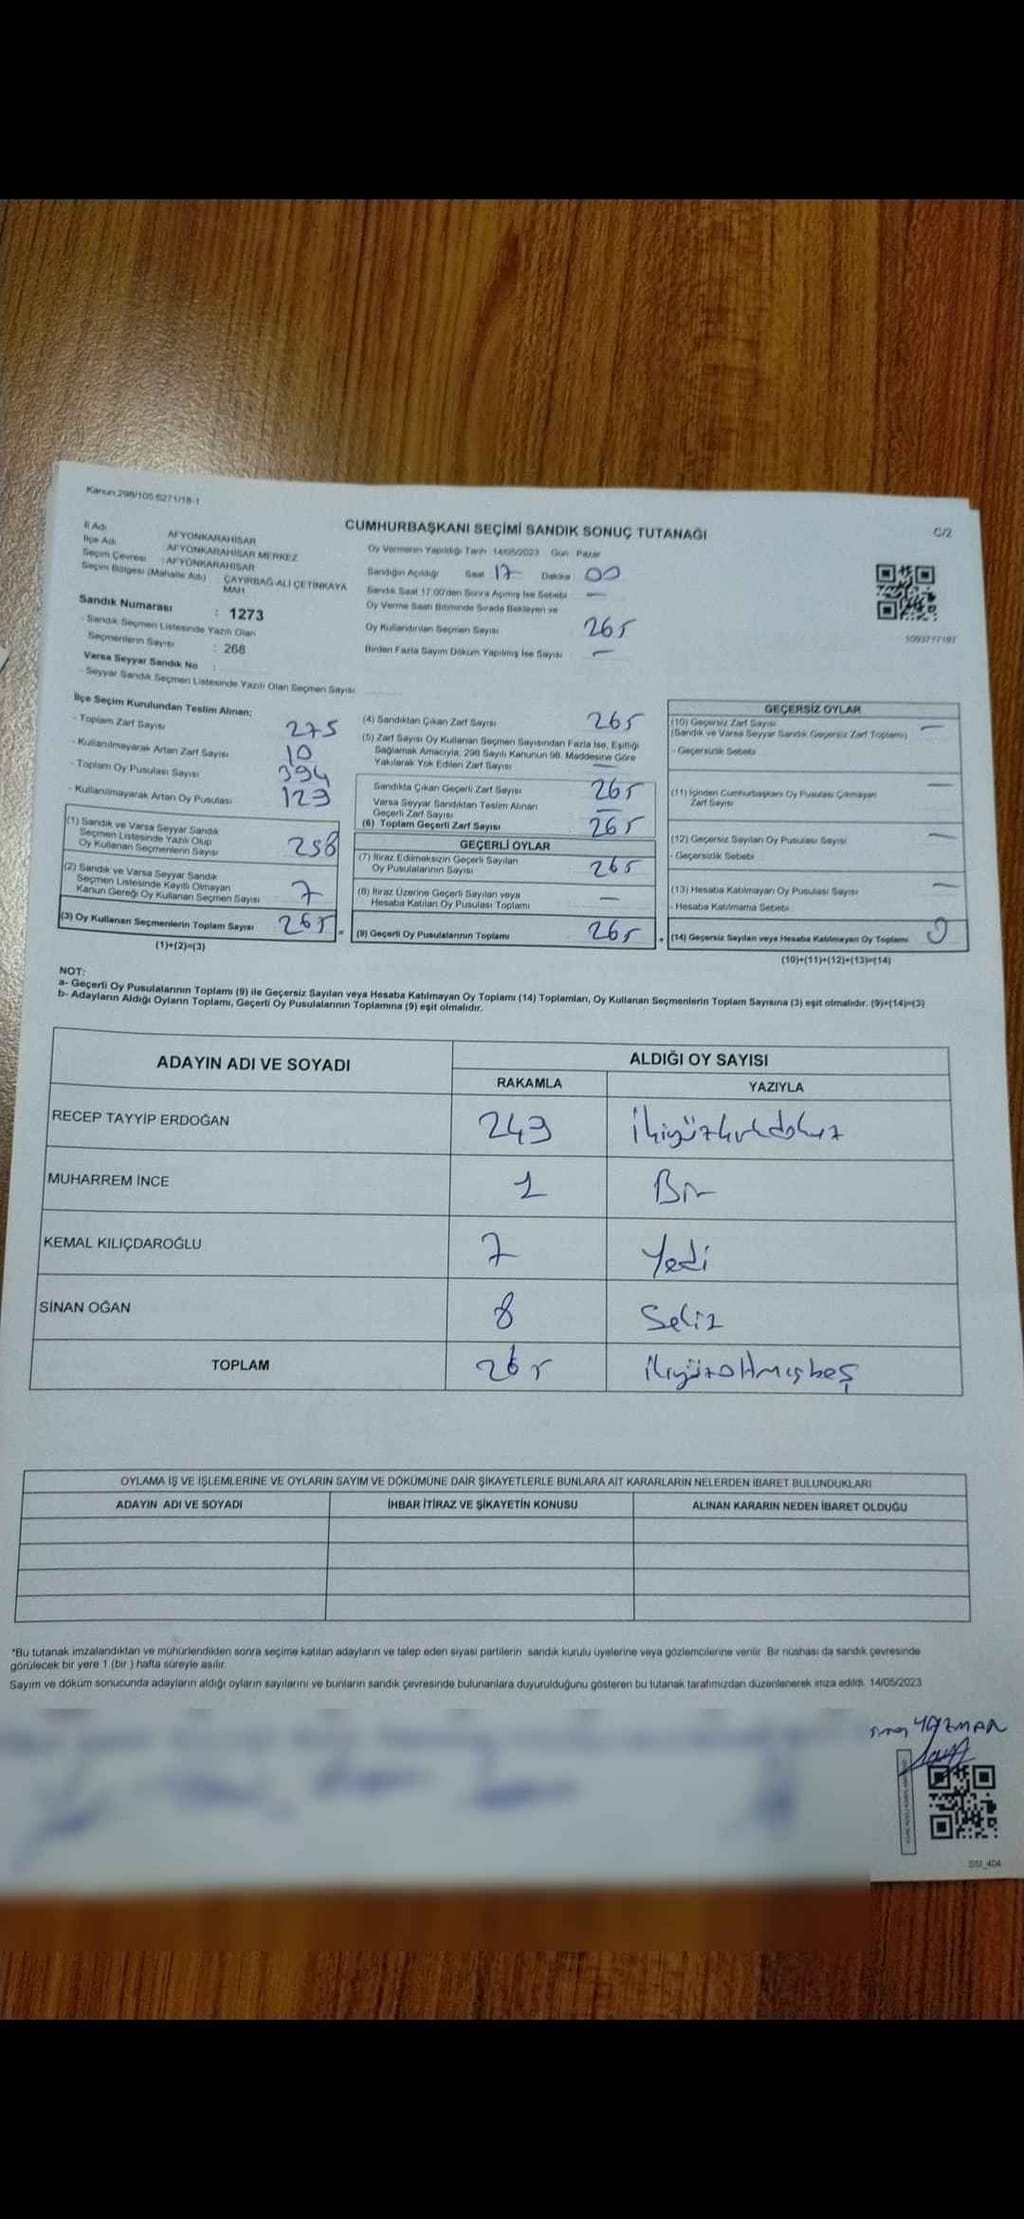 Kanun 298/105 6271/18-1
CUMHURBAŞKANI SEÇİMİ SANDIK SONUÇ TUTANAĞI
C/2
İl Adı AFYONKARAHİSAR
İlçe Adı AFYONKARAHİSAR MERKEZ
Seçim Çevresi : AFYONKARAHİSAR
Seçim Bölgesi (Mahalle Adı) ÇAYIRBAĞ-ALİ ÇETİNKAYA MAH
Sandık Numarası : 1273
- Sandık Seçmen Listesinde Yazılı Olan
Seçmenlerin Sayısı : 268
Varsa Seyyar Sandık No :
- Seyyar Sandık Seçmen Listesinde Yazılı Olan Seçmen Sayısı
Oy Vermenin Yapıldığı Tarih 14/05/2023 Gün Pazar
Sandığın Açıldığı Saat 17 Dakika 00
Sandık Saat 17.00'den Sonra Açılmış İse Sebebi —
Oy Verme Saati Bitiminde Sırada Bekleyen ve
Oy Kullandırılan Seçmen Sayısı 265
Birden Fazla Sayım Döküm Yapılmış İse Sayısı —
1093777107
İlçe Seçim Kurulundan Teslim Alınan;
- Toplam Zarf Sayısı 275
- Kullanılmayarak Artan Zarf Sayısı 10
- Toplam Oy Pusulası Sayısı 394
- Kullanılmayarak Artan Oy Pusulası 129
(1) Sandık ve Varsa Seyyar Sandık
Seçmen Listesinde Yazılı Olup
Oy Kullanan Seçmenlerin Sayısı 258
(2) Sandık ve Varsa Seyyar Sandık
Seçmen Listesinde Kayıtlı Olmayan
Kanun Gereği Oy Kullanan Seçmen Sayısı 7
(3) Oy Kullanan Seçmenlerin Toplam Sayısı 265 =
(1)+(2)=(3)
(4) Sandıktan Çıkan Zarf Sayısı 265
(5) Zarf Sayısı Oy Kullanan Seçmen Sayısından Fazla İse, Eşitliği
Sağlamak Amacıyla, 298 Sayılı Kanunun 98. Maddesine Göre
Yakılarak Yok Edilen Zarf Sayısı —
Sandıkta Çıkan Geçerli Zarf Sayısı 265
Varsa Seyyar Sandıktan Teslim Alınan
Geçerli Zarf Sayısı —
(6) Toplam Geçerli Zarf Sayısı 265
GEÇERLİ OYLAR
(7) İtiraz Edilmeksizin Geçerli Sayılan
Oy Pusulalarının Sayısı 265
(8) İtiraz Üzerine Geçerli Sayılan veya
Hesaba Katılan Oy Pusulası Toplamı —
(9) Geçerli Oy Pusulalarının Toplamı 265 +
GEÇERSİZ OYLAR
(10) Geçersiz Zarf Sayısı —
(Sandık ve Varsa Seyyar Sandık Geçersiz Zarf Toplamı)
- Geçersizlik Sebebi
(11) İçinden Cumhurbaşkanı Oy Pusulası Çıkmayan —
Zarf Sayısı
(12) Geçersiz Sayılan Oy Pusulası Sayısı —
- Geçersizlik Sebebi
(13) Hesaba Katılmayan Oy Pusulası Sayısı —
- Hesaba Katılmama Sebebi
(14) Geçersiz Sayılan veya Hesaba Katılmayan Oy Toplamı 0
(10)+(11)+(12)+(13)=(14)
NOT:
a- Geçerli Oy Pusulalarının Toplamı (9) ile Geçersiz Sayılan veya Hesaba Katılmayan Oy Toplamı (14) Toplamları, Oy Kullanan Seçmenlerin Toplam Sayısına (3) eşit olmalıdır. (9)+(14)=(3)
b- Adayların Aldığı Oyların Toplamı, Geçerli Oy Pusulalarının Toplamına (9) eşit olmalıdır.
ADAYIN ADI VE SOYADI ALDIĞI OY SAYISI
RAKAMLA YAZIYLA
RECEP TAYYİP ERDOĞAN 249 ikiyüzkırkdokuz
MUHARREM İNCE 1 Bir
KEMAL KILIÇDAROĞLU 7 Yedi
SİNAN OĞAN 8 Sekiz
TOPLAM 265 ikiyüzaltmışbeş
OYLAMA İŞ VE İŞLEMLERİNE VE OYLARIN SAYIM VE DÖKÜMÜNE DAİR ŞİKAYETLERLE BUNLARA AİT KARARLARIN NELERDEN İBARET BULUNDUKLARI
ADAYIN ADI VE SOYADI İHBAR İTİRAZ VE ŞİKAYETİN KONUSU ALINAN KARARIN NEDEN İBARET OLDUĞU
*Bu tutanak imzalandıktan ve mühürlendikten sonra seçime katılan adayların ve talep eden siyasi partilerin sandık kurulu üyelerine veya gözlemcilerine verilir. Bir nüshası da sandık çevresinde
görülecek bir yere 1 (bir) hafta süreyle asılır.
Sayım ve döküm sonucunda adayların aldığı oyların sayılarını ve bunların sandık çevresinde bulunanlara duyurulduğunu gösteren bu tutanak tarafımızdan düzenlenerek imza edildi. 14/05/2023
YAZMAN
SSI_404